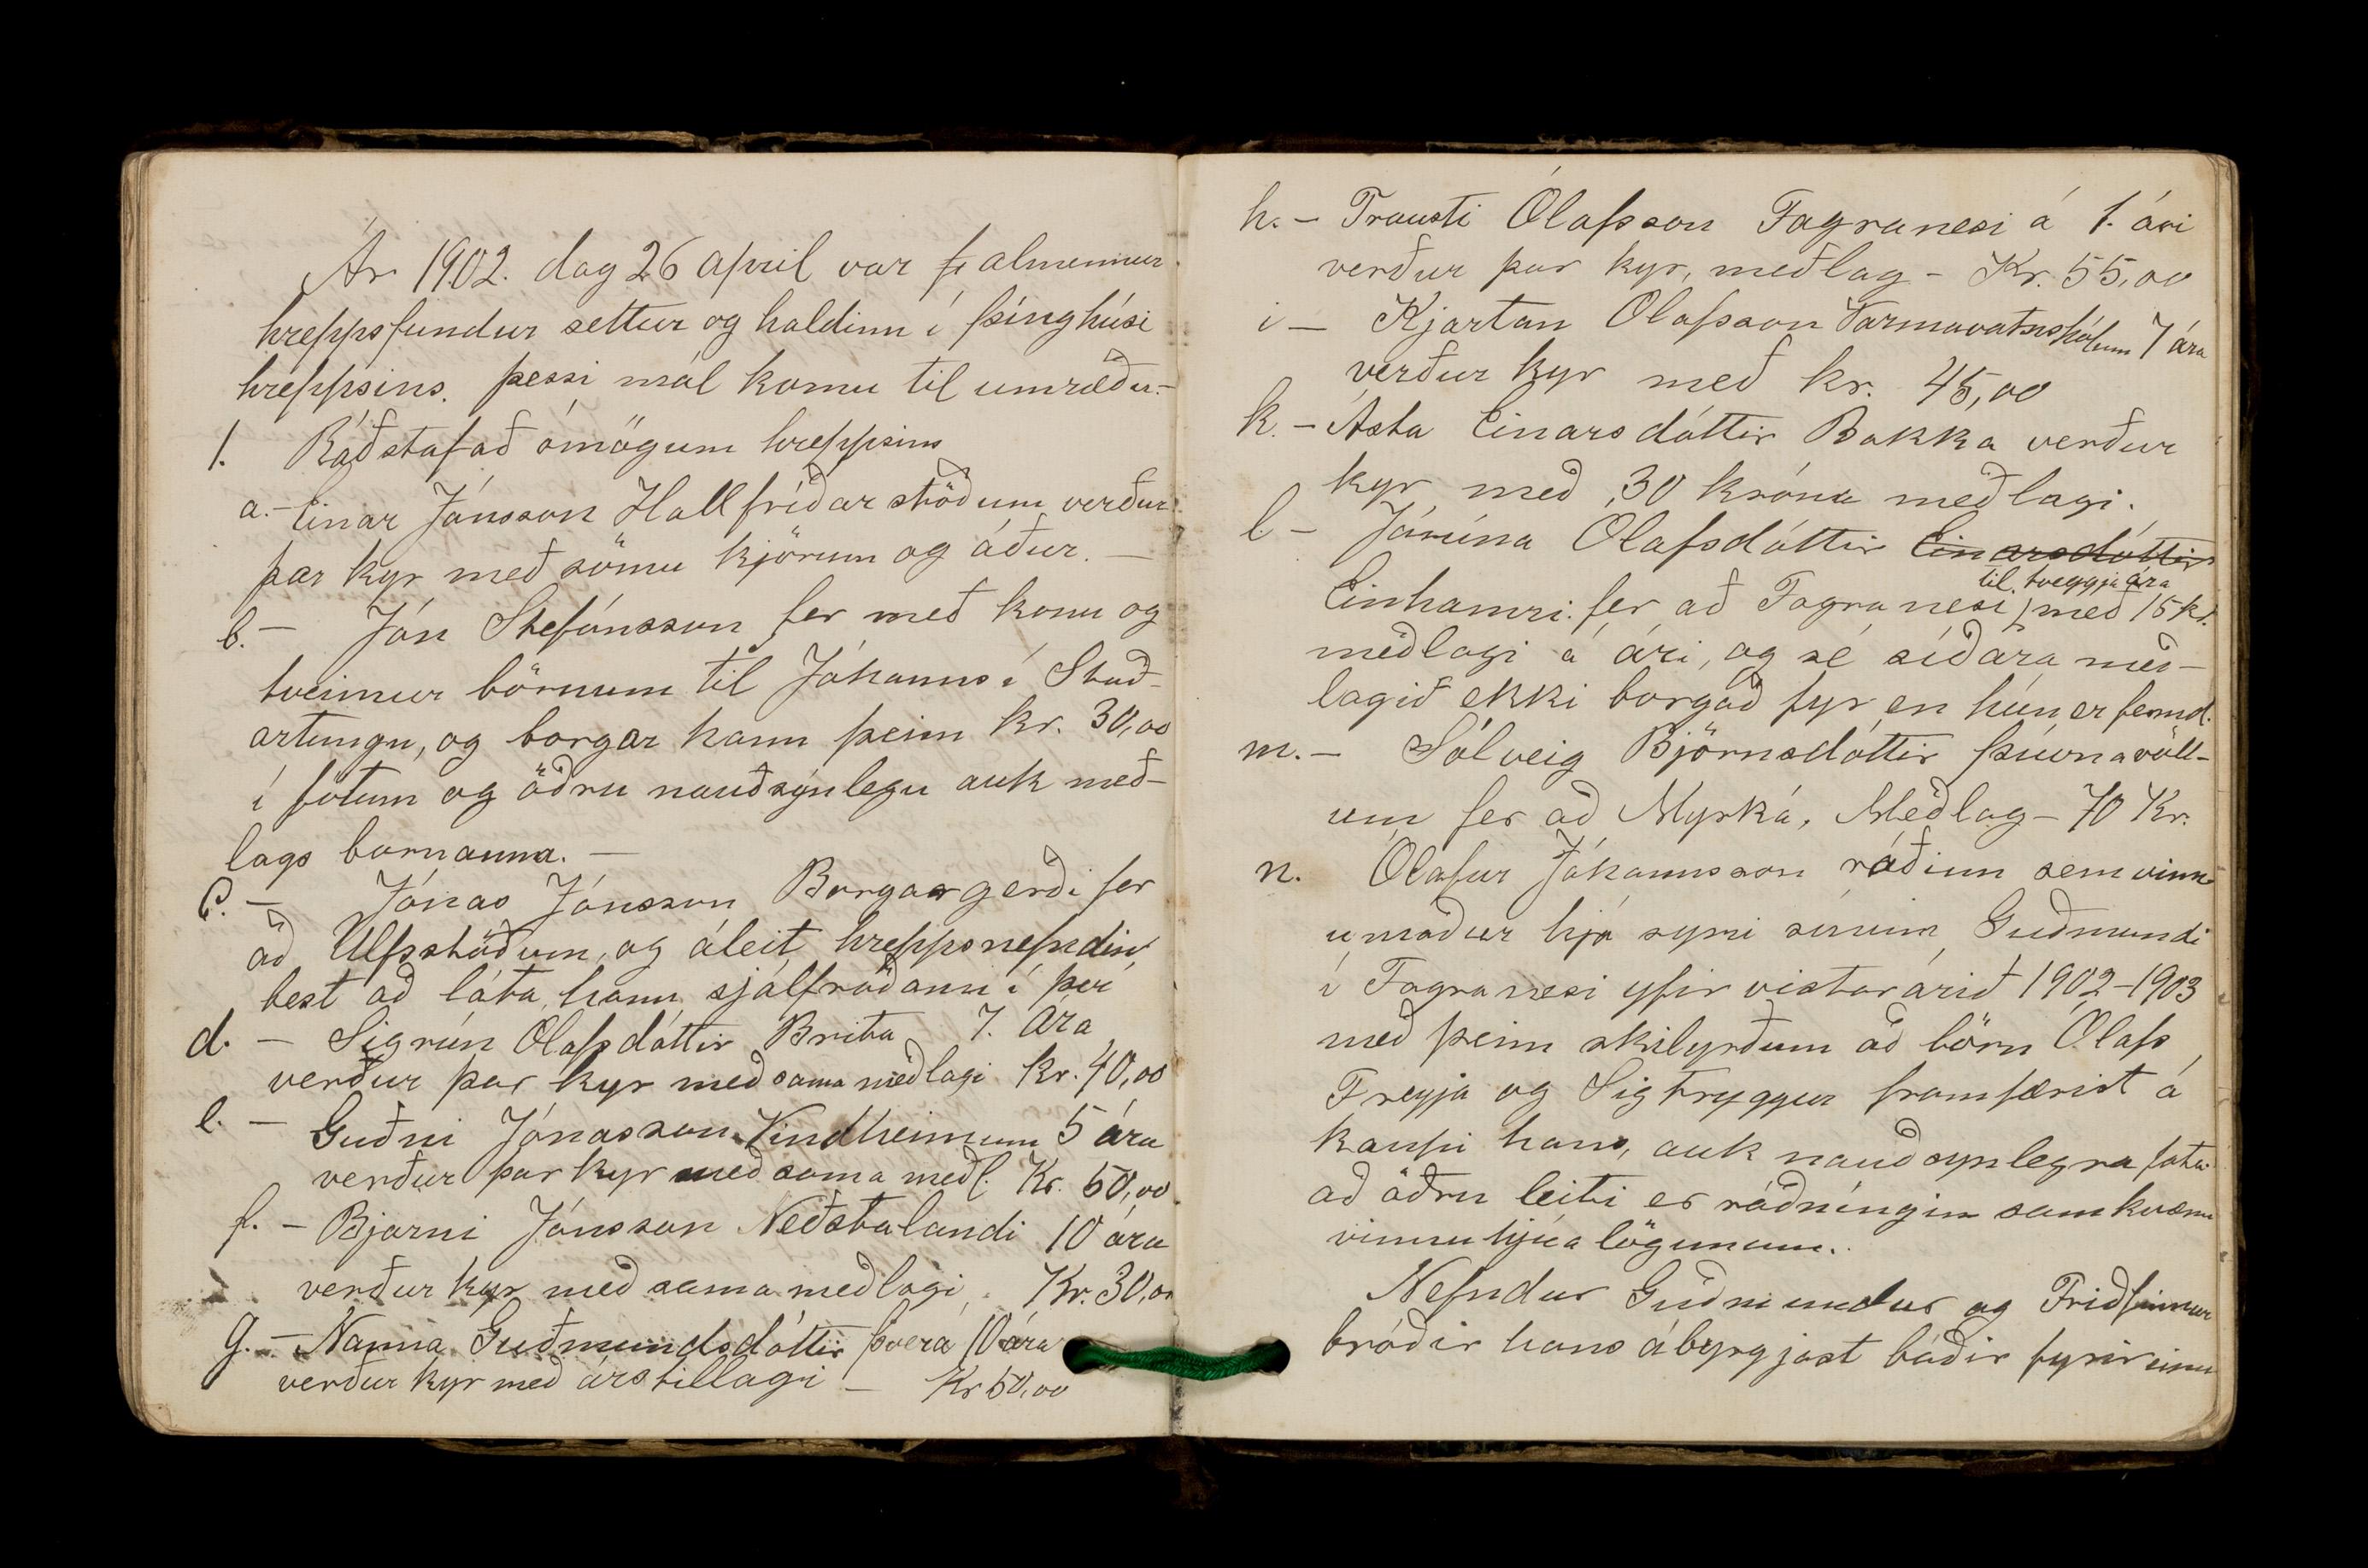 Ár 1902. dag 26 april var almennur
hreppsfundur settur og haldinn í þinghúsi
hreppsins. þessi mál komu til umræðu.-
1. Ráðstafað ómögum hreppsins
a.- Einar Jónsson Hallfríðarstöðum verður
þar kyr með sömu kjörum og áður. -
b. - Jón Stefánsson fer með konu og
tveimur börnum til Jóhanns í Stað-
artungu, og borgar hann þeim kr. 30,00
í fötum og öðru nauðsýnlegu auk með-
lags barnanna. -
C. - Jónas Jónsson Borgargerði fer
að Ulfsstöðum, og áleit hreppsnefndin
best að láta hann sjálfráðann í því
d. - Sigrún Olafsdóttir Brita 7. ára
verður þar kyr með sama meðlagi kr. 40,00
e. - Guðni Jónasson Vindheimum 5 ára
verður þar kyr með sama meðl. Kr. 60,00
f. - Bjarni Jónsson Neðstalandi 10 ára
verður kyr með sama meðlagi, Kr. 30,00
g. - Nanna Guðmundsdóttir þverá 10 ára
verður kyr með árstillagi - Kr 50,00
h. - Trausti Ólafsson Fagranesi á 1. ári
verður þar kyr, meðlag - Kr. 55,00
i - Kjartan Olafsson Varmavatnshólum 7 ára
verður kyr með kr. 45,00
k. - Ásta Einarsdóttir Bakka verður
kyr með 30 króna meðlagi.
l - Jónína Olafsdóttir Einarsdóttir
til tveggja ára
Einhamri. fer að Fagranesi með 15 kr.
meðlagi á ári, og sé síðara með-
lagið ekki borgað fyr en hún er fermd.
m. - Sólveig Björnsdóttir þúfnavöll-
um fer að Myrká, Meðlag - 70 Kr.
n. Ólafur Jóhannsson ráðinn sem vinn-
umaður hjá syni sínum Guðmundi
í Fagranesi yfir vistarárið 1902-1903
með þeim skilyrðum að börn Ólafs
Freyja og Sigtryggur framfærist á
kaupi hans, auk nauðsynlegra fata.
að öðru leiti er ráðníngin samkvæm
vinnuhjúa lögunum.
Nefndur Guðmundur og Friðfinnur
bróðir hans ábyrgjast báðir fyrir einn